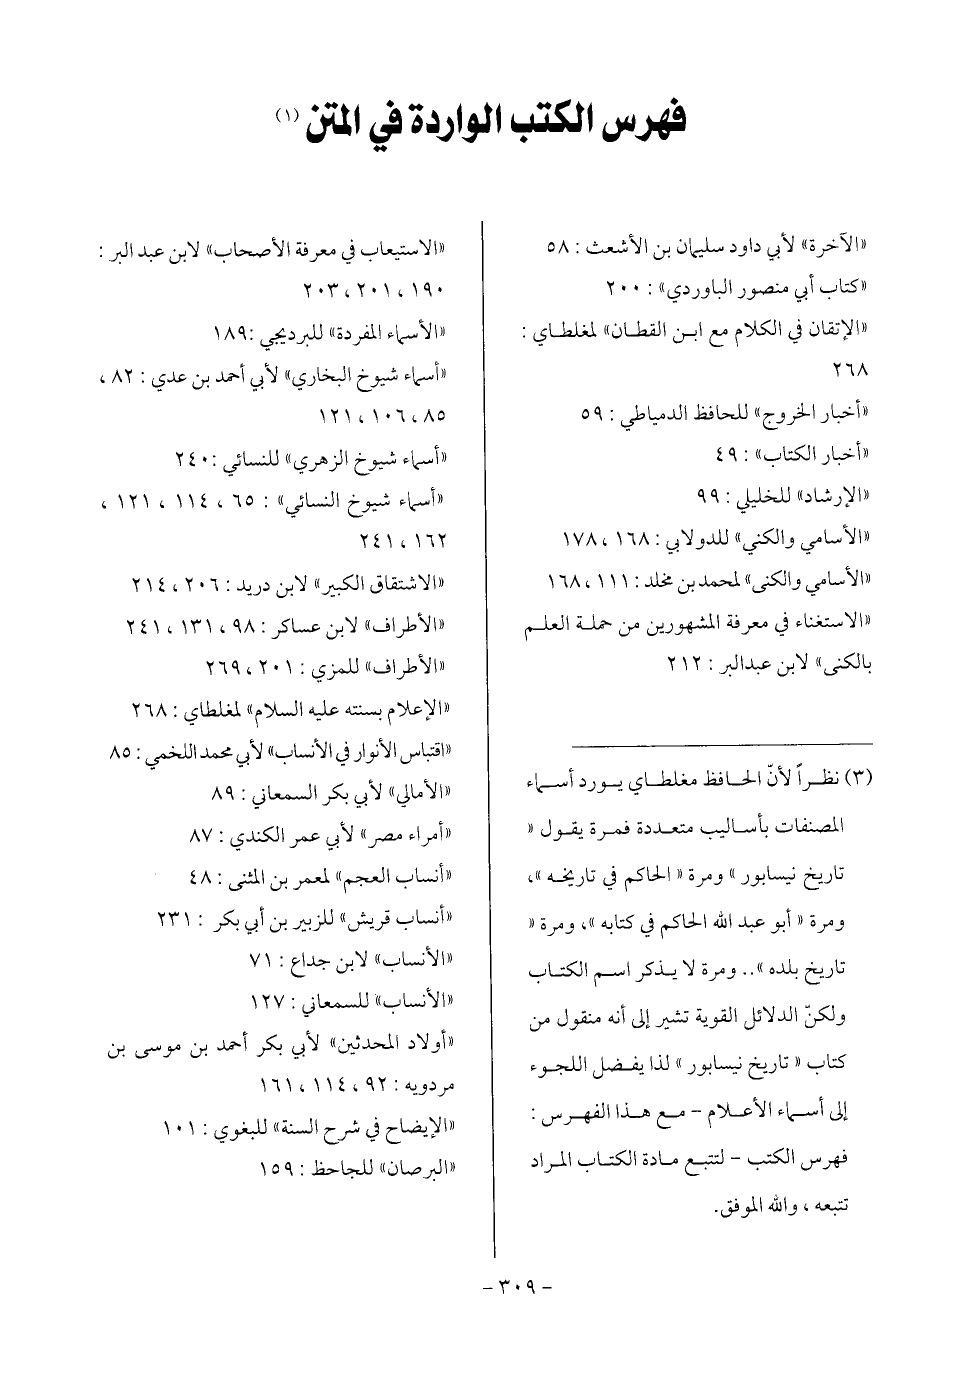 فهرس الكتب الواردة في المتن (١)
«الآخرة» لأبي داود سليمان بن الأشعث : ٥٨
«كتاب أبي منصور الباوردي» : ٢٠٠
«الإتقان في الكلام مع ابـن القطـان» لمغلطاي :
٢٦٨
«أخبار الخروج» للحافظ الدمياطي : ٥٩
«أخبار الكتاب» : ٤٩
«الإرشاد» للخليلي : ٩٩
«الأسامي والكني» للدولابي : ١٦٨ ، ١٧٨
«الأسامي والكنى» لمحمد بن مخلد : ١١١ ، ١٦٨
«الاستغناء في معرفة المشهورين من حملـة العلـم
بالكنى» لابن عبدالبر : ٢١٢
(٣) نظـراً لأنّ الحـافظ مغلطـاي يـورد أسـماء
المصنفات بأسـاليب متعـددة فمـرة يقـول «
تاريخ نيسابور » ومرة « الحاكم في تاريخـه »،
ومرة « أبو عبد الله الحاكم في كتابه »، ومرة «
تاريخ بلده ».. ومرة لا يـذكر اسـم الكتـاب
ولكنّ الدلائل القوية تشير إلى أنه منقول من
كتاب « تاريخ نيسابور » لذا يفـضل اللجـوء
إلى أسـماء الأعـلام – مـع هـذا الفهـرس :
فهرس الكتب – لتتبـع مـادة الكتـاب المـراد
تتبعه ، والله الموفق.
«الاستيعاب في معرفة الأصحاب» لابن عبد البر :
١٩٠ ، ٢٠١ ، ٢٠٣
«الأسماء المفردة» للبرديجي :١٨٩
«أسماء شيوخ البخاري» لأبي أحمد بن عدي : ٨٢ ،
٨٥ ، ١٠٦ ، ١٢١
«أسماء شيوخ الزهري» للنسائي :٢٤٠
«أسماء شيوخ النسائي» : ٦٥ ، ١١٤ ، ١٢١ ،
١٦٢ ، ٢٤١
«الاشتقاق الكبير» لابن دريد : ٢٠٦ ، ٢١٤
«الأطراف» لابن عساكر : ٩٨ ، ١٣١ ، ٢٤١
«الأطراف» للمزي : ٢٠١ ، ٢٦٩
«الإعلام بسنته عليه السلام» لمغلطاي : ٢٦٨
«اقتباس الأنوار في الأنساب» لأبي محمد اللخمي : ٨٥
«الأمالي» لأبي بكر السمعاني : ٨٩
«أمراء مصر» لأبي عمر الكندي : ٨٧
«أنساب العجم» لمعمر بن المثنى : ٤٨
«أنساب قريش» للزبير بن أبي بكر : ٢٣١
«الأنساب» لابن جداع : ٧١
«الأنساب» للسمعاني : ١٢٧
«أولاد المحدثين» لأبي بكر أحمد بن موسى بن
مردويه : ٩٢ ، ١١٤ ، ١٦١
«الإيضاح في شرح السنة» للبغوي : ١٠١
«البرصان» للجاحظ : ١٥٩
- ٣٠٩ -